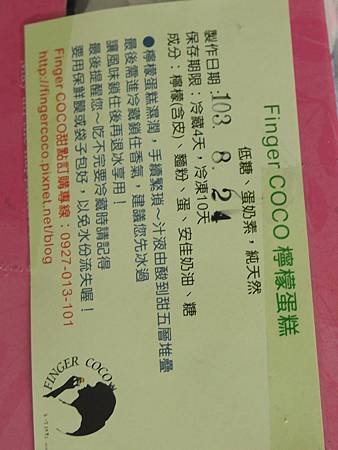 Finger COCO 檸檬蛋糕
低糖、蛋奶素,純天然
製作日期:103. 8. 24
保存期限:冷藏4天,冷凍10天
成分:檸檬(含皮)、麵粉、蛋、安佳奶油、糖
●檸檬蛋糕濕潤,手續繁瑣~汁液由酸到甜五層堆疊
最後需進冷藏鎖住香氣,建議您先冰過
讓風味鎖住後再退冰享用!
最後提醒您~吃不完要冷藏時請記得
要用保鮮膜或袋子包好,以免水份流失喔!
Finger COCO甜點訂購專線:0927-013-101
http://fingercoco.pixnet.net/blog
FINGER COCO